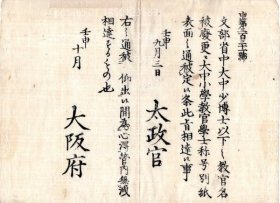 文部省中大中少博士以下ノ教官名
被廃更ニ大中小學教官學士称号別紙
表面之通被定候条此旨相達候事
壬申九月三日
太政官
右之通被 仰出候間為心得管内無洩
相達するもの也
壬申十月
大阪府